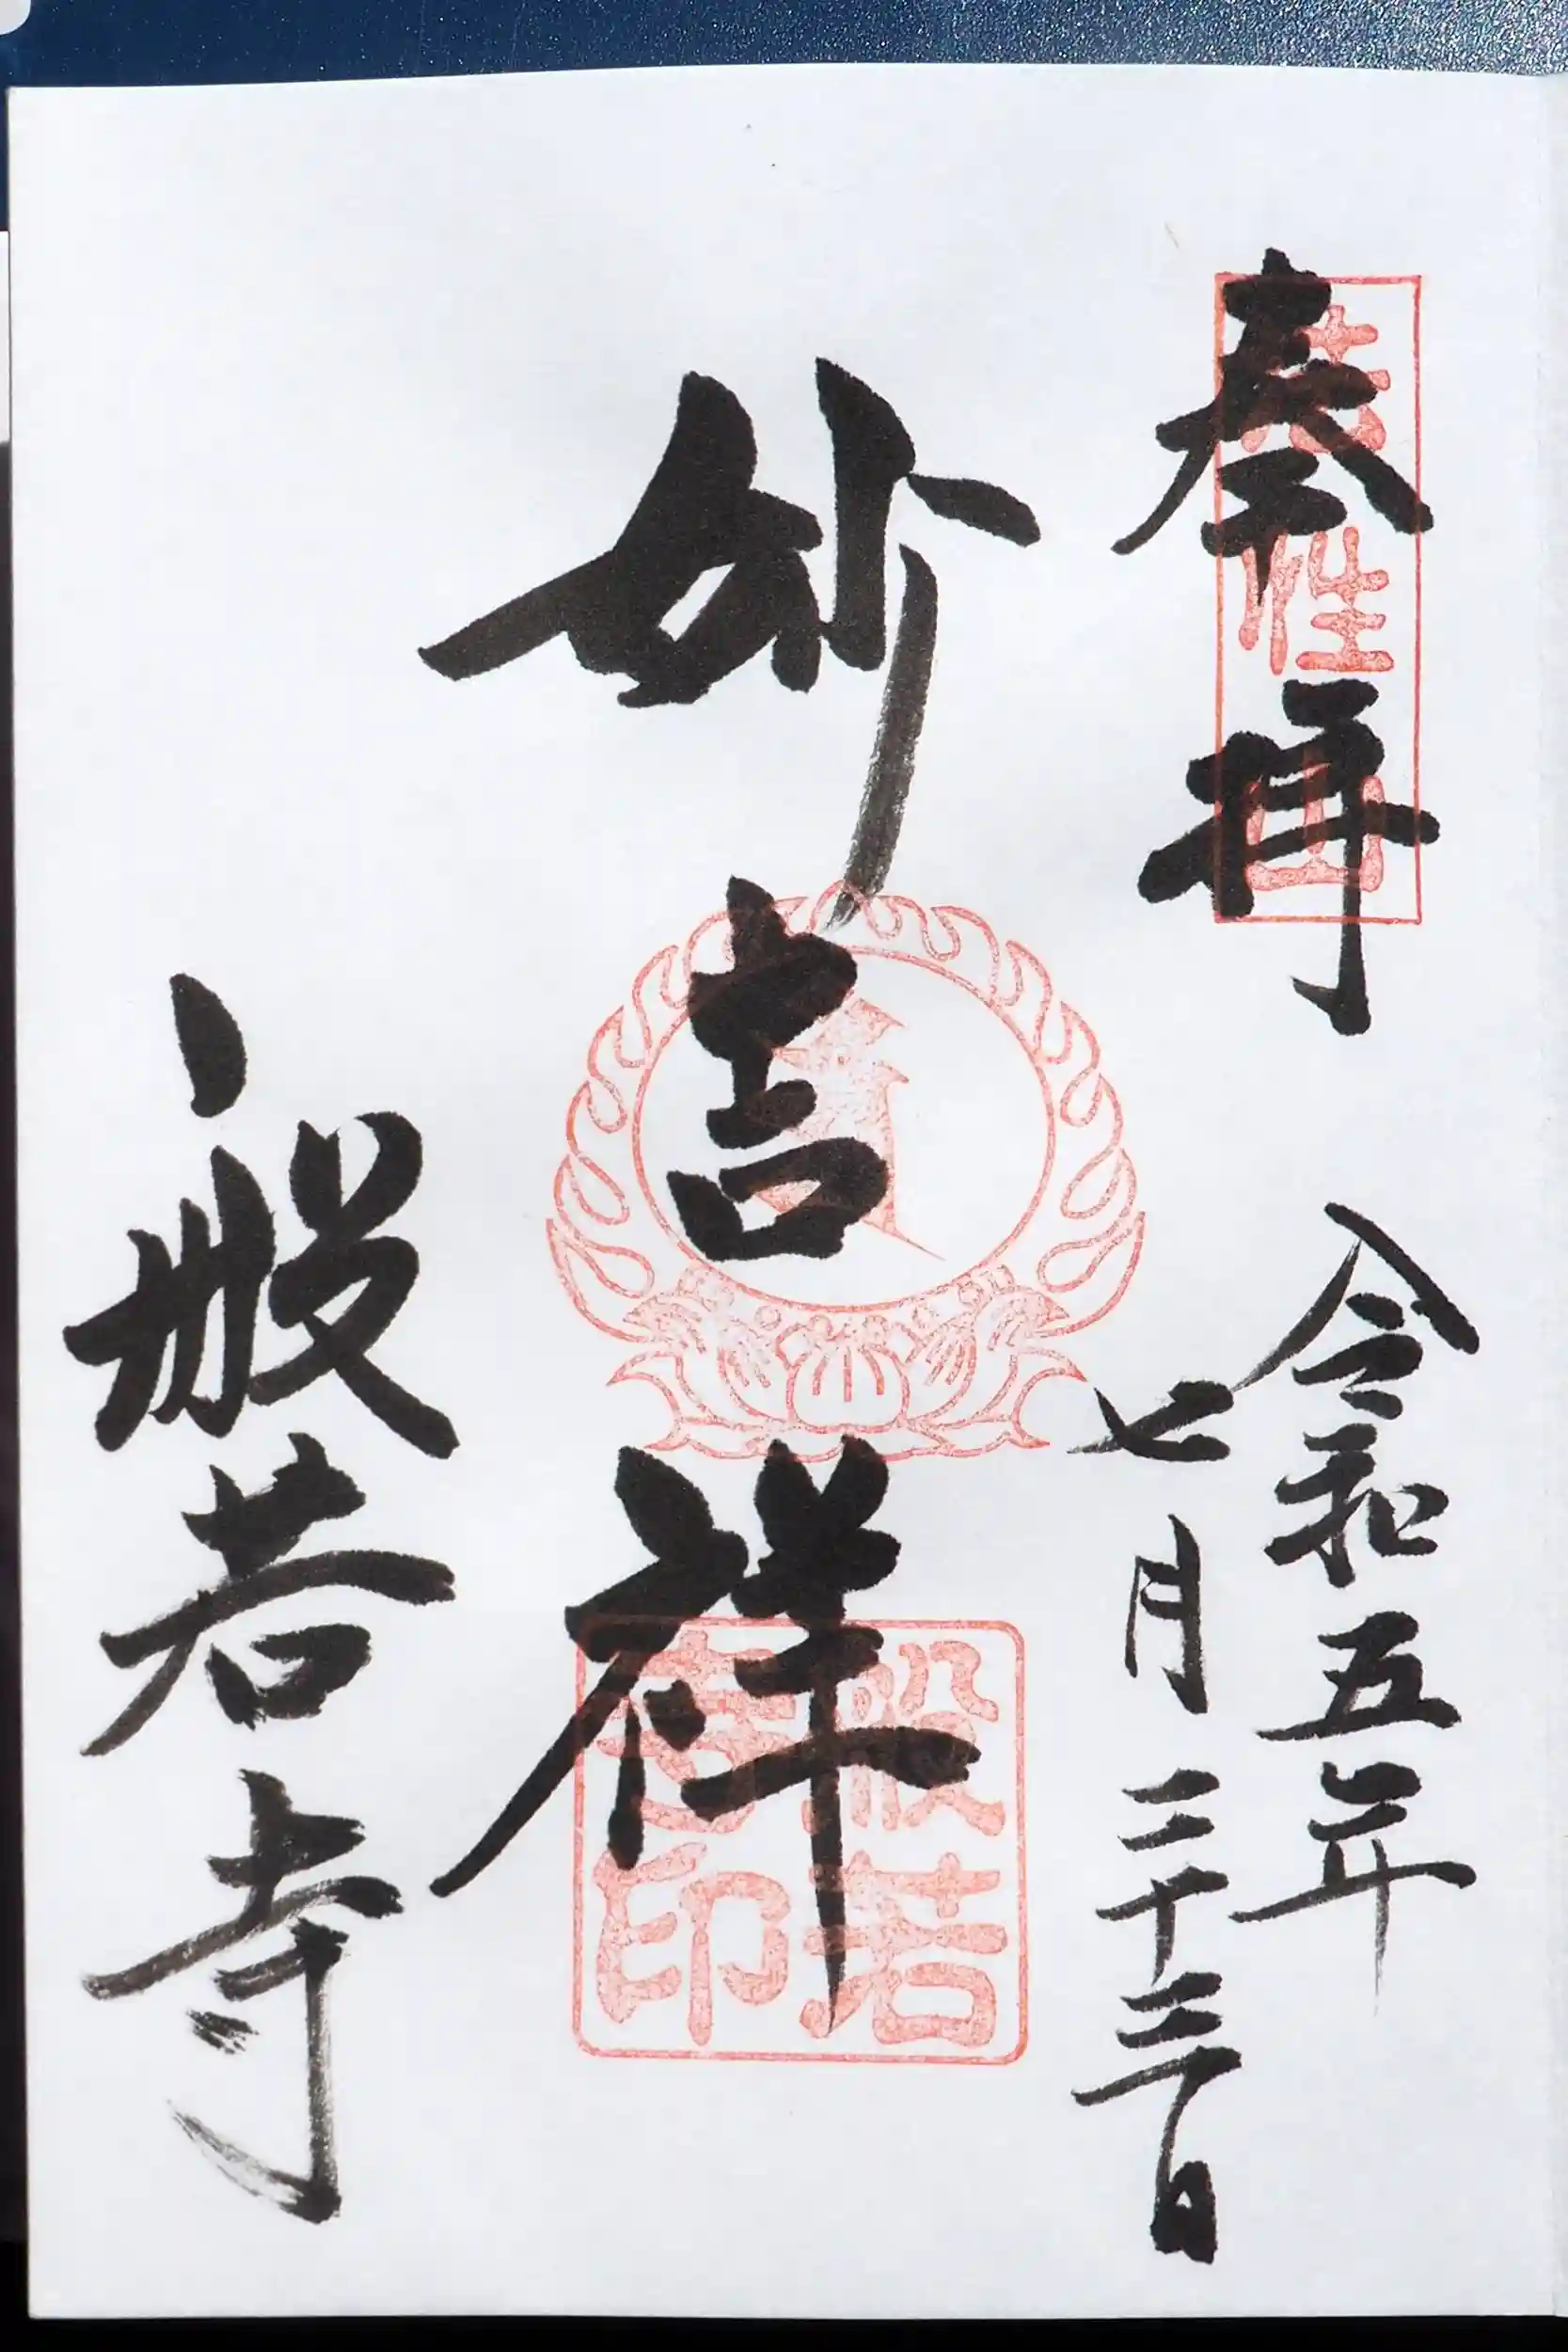 奉拝
令和五年
七月二十三日
妙吉祥
般若寺
法性山
般若寺印